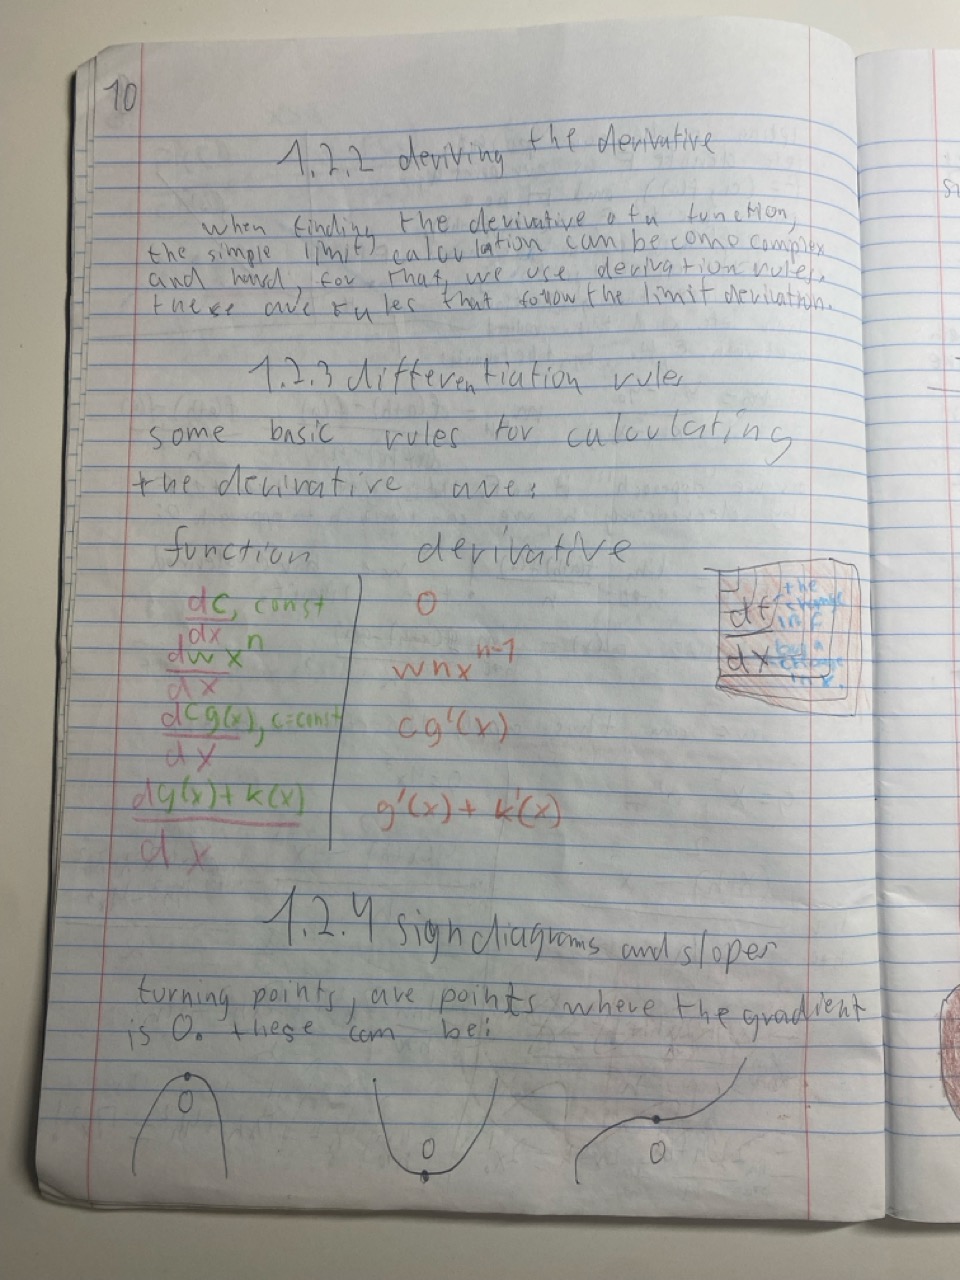 10
1.2.2 deriving the derivative
when finding the derivative of a function,
the simple limit calculation can become complex
and hard, for that, we use derivation rules.
these are rules that follow the limit derivation.
1.2.3 differentiation rules
some basic rules for calculating
the derivative are:
function derivative
dc, const 0
dx
dwx^n wnx^n-1
dx
dcg(x), c=const cg'(x)
dx
dg(x)+k(x) g'(x)+k'(x)
dx
df the change in f
dx
1.2.4 sign diagrams and slopes
turning points, are points where the gradient
is 0. these can be:
0 0 0